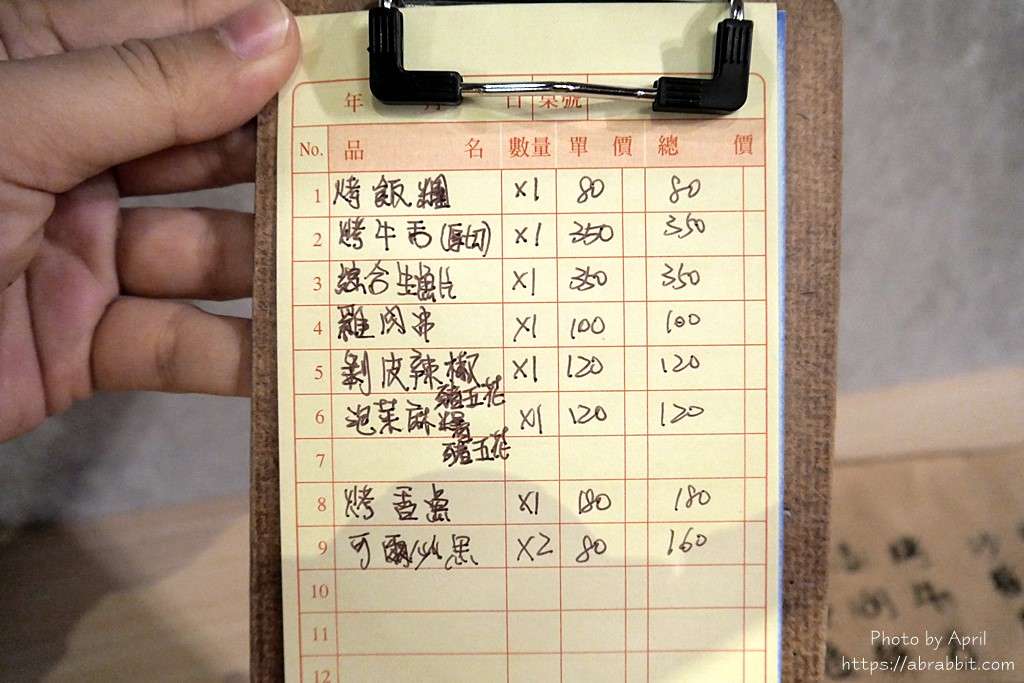 年 月 日 桌號
No. 品 名 數量 單 價 總 價
1 烤飯糰 x1 80 80
2 烤牛舌(厚切) x1 350 350
3 綜合生魚片 x1 350 350
4 雞肉串 x1 100 100
5 剝皮辣椒 x1 120 120
豬五花
6 泡菜麻糬 x1 120 120
7 豬五花
8 烤香魚 x1 180 180
9 可爾必思 x2 80 160
10
11
12
Photo by April
https://abrabbit.com